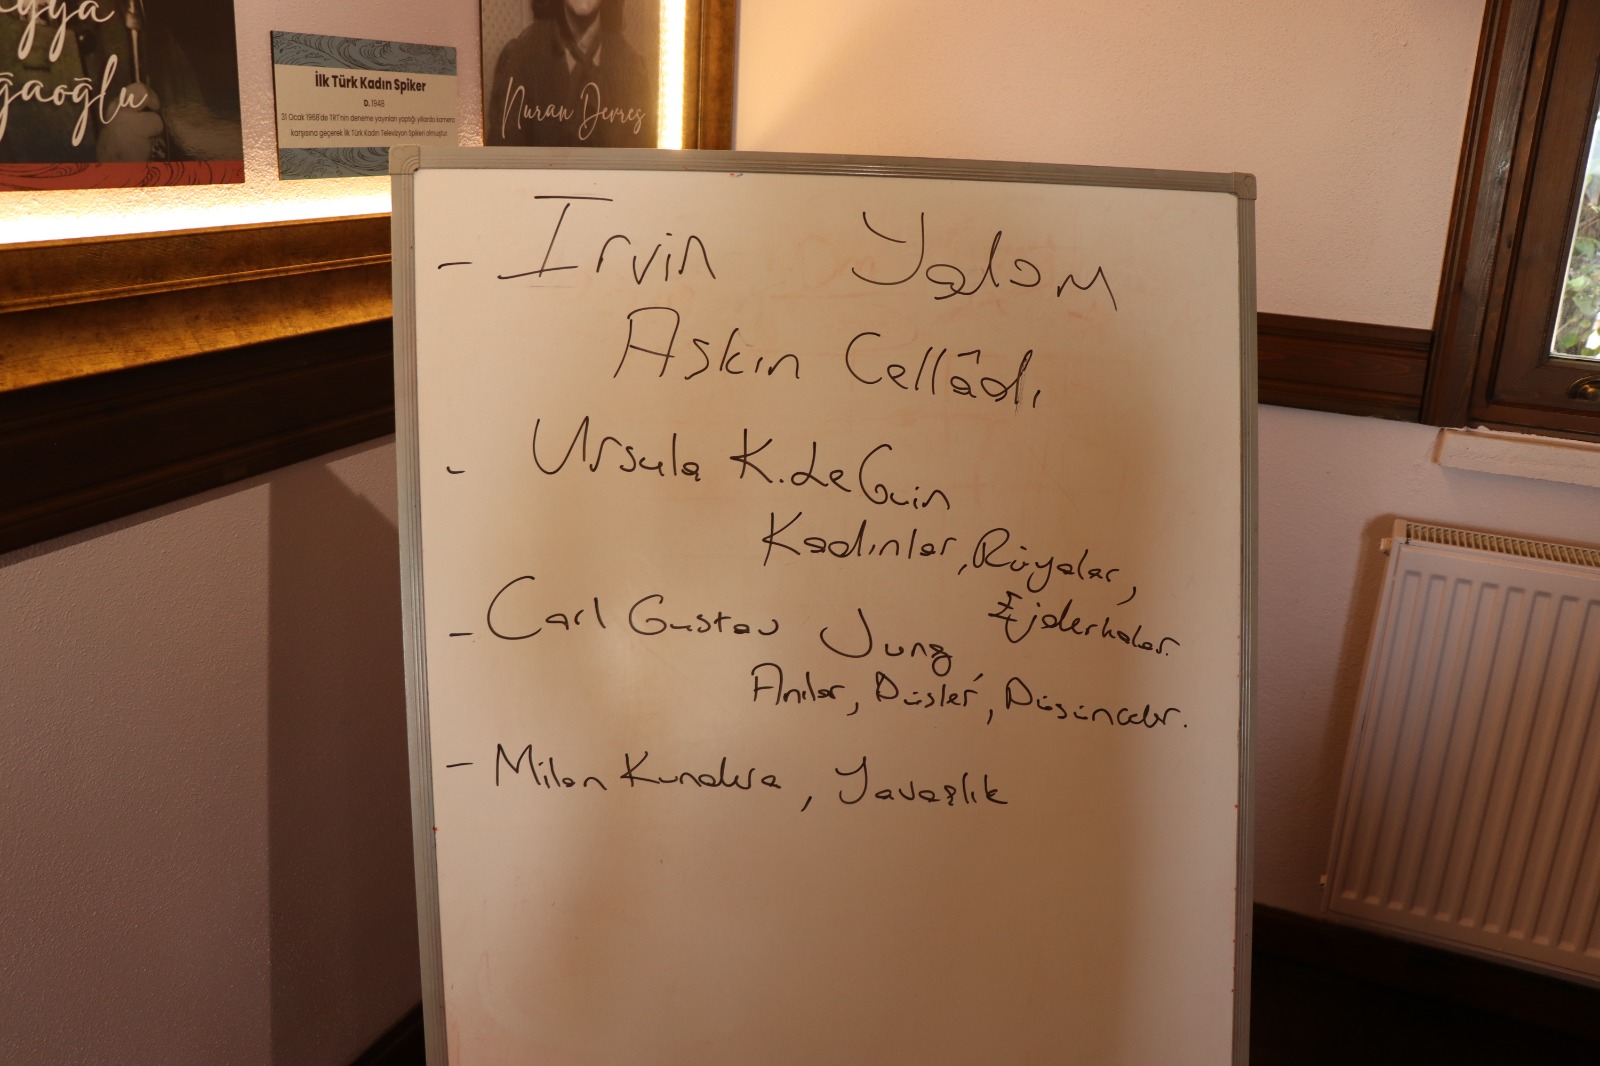 ayya
ğaoğlu
İlk Türk Kadın Spiker
D. 1948
31 Ocak 1968'de TRT'nin deneme yayınları yaptığı yıllarda kamera
karşısına geçerek İlk Türk Kadın Televizyon Spikeri olmuştur.
Nuran Devreş
- Irvin Yalom
Aşkın Cellâdı
- Ursula K. Le Guin
Kadınlar, Rüyalar,
Ejderhalar.
- Carl Gustav Jung
Anılar, Düşler, Düşünceler.
- Milan Kundera, Yavaşlık